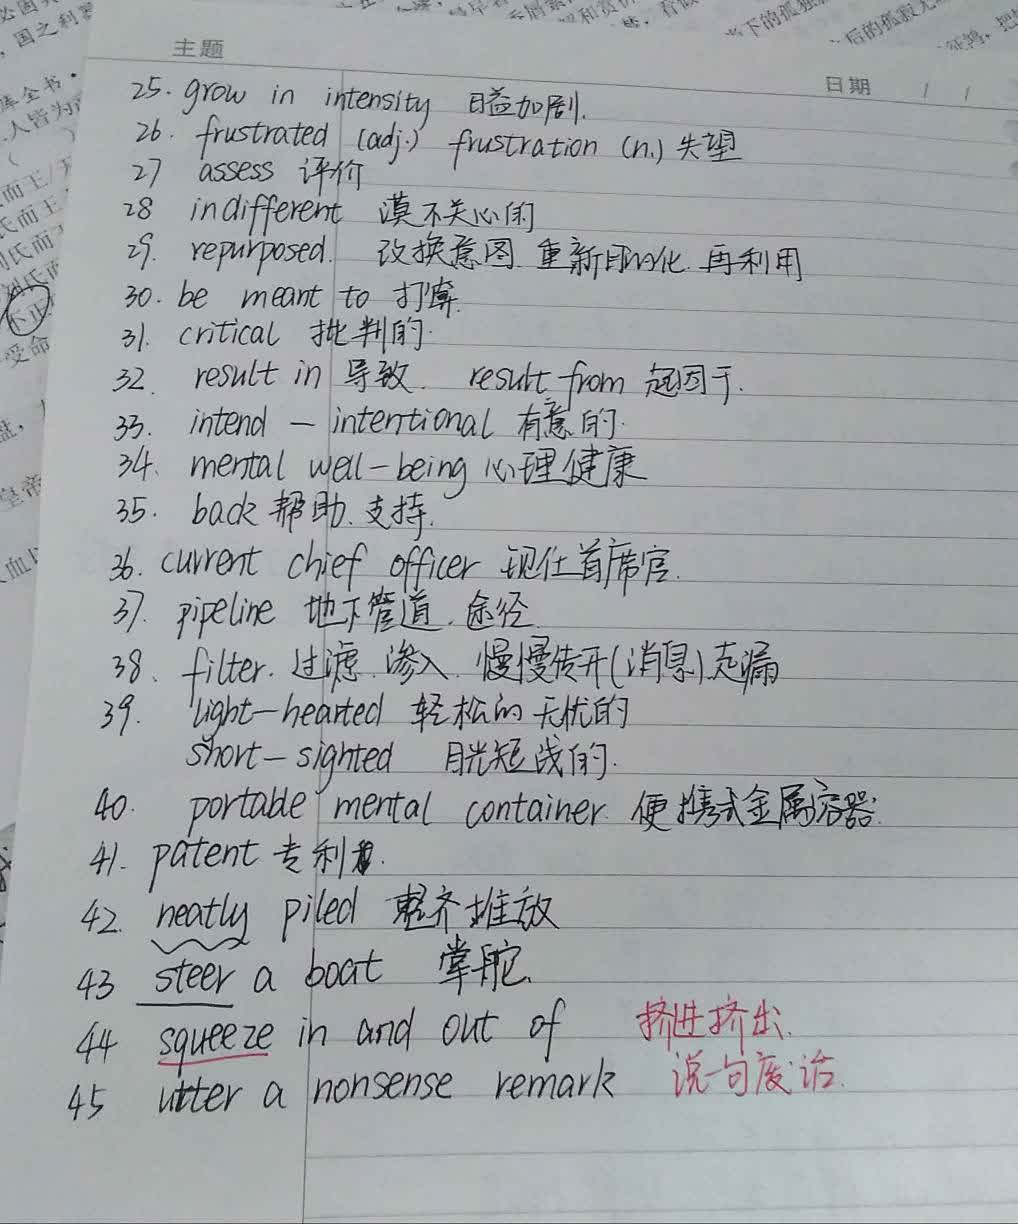 主题
日期 / /
25. grow in intensity 日益加剧.
26. frustrated (adj.) frustration (n.) 失望
27 assess 评价
28 indifferent 漠不关心的
29. repurposed. 改换意图 重新目的化 再利用
30. be meant to 打算.
31. critical 批判的.
32. result in 导致. result from 起因于.
33. intend — intentional 有意的.
34. mental well-being 心理健康
35. back 帮助. 支持.
36. current chief officer 现任首席官.
37. pipeline 地下管道. 途径.
38、filter. 过滤. 渗入. 慢慢传开(消息)走漏
39. light-hearted 轻松的 无忧的
short-sighted 目光短浅的.
40. portable mental container. 便携式金属容器.
41. patent 专利.
42. neatly piled 整齐堆放
43 steer a boat 掌舵.
44 squeeze in and out of 挤进挤出.
45 utter a nonsense remark 说一句废话.